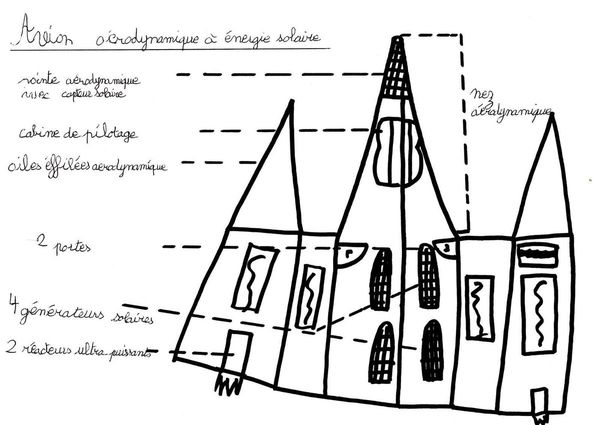 Avion aérodynamique à énergie solaire
pointe aérodynamique
avec capteur solaire
nez
aérodynamique
cabine de pilotage
ailes éffilées aerodynamique
2 portes
4 générateurs solaires
2 réacteurs ultra puissants